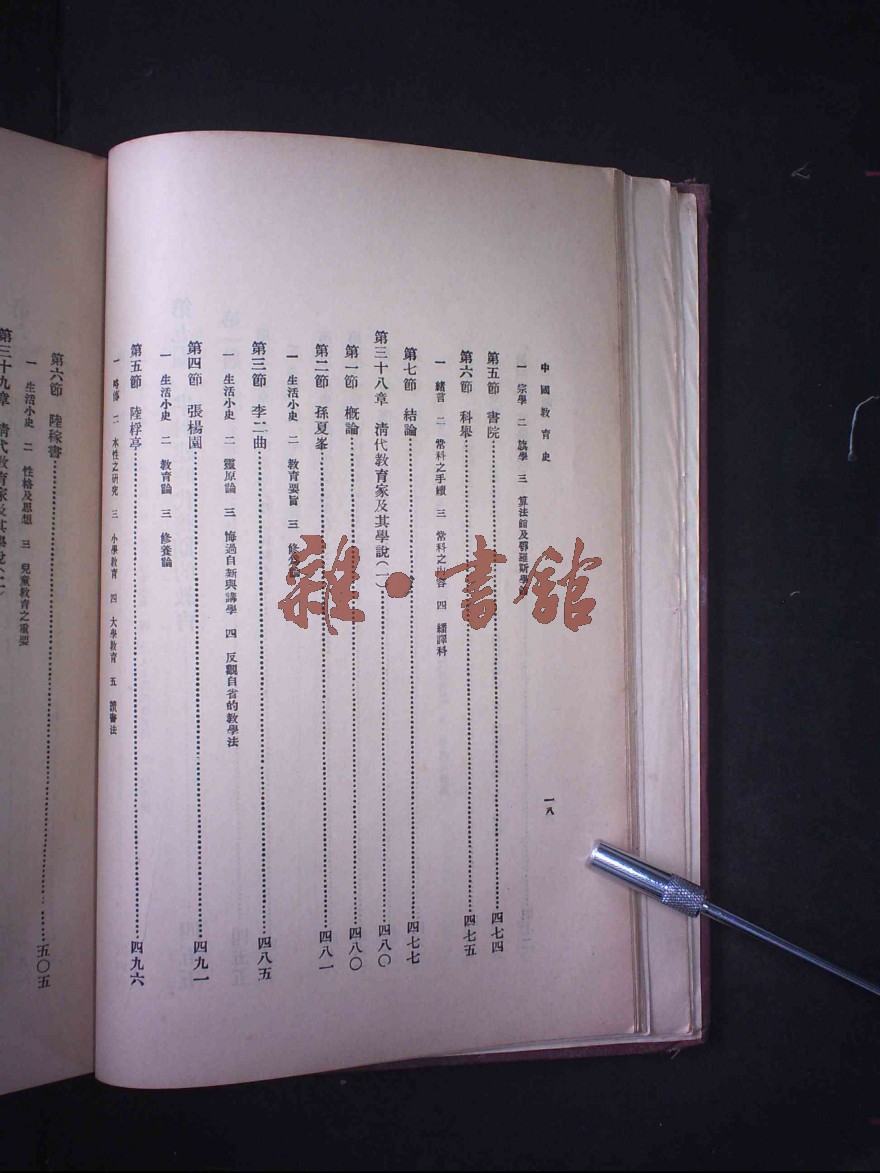 中國教育史
一八
一 宗學 二 旗學 三 算法館及鄂羅斯學
第五節 書院 四七四
第六節 科舉 四七五
一 緒言 二 常科之手續 三 常科之內容 四 繙譯科
第七節 結論 四七七
第三十八章 清代教育家及其學說(一) 四八〇
第一節 概論 四八〇
第二節 孫夏峯 四八一
一 生活小史 二 教育要旨 三 修養論
第三節 李二曲 四八五
一 生活小史 二 靈原論 三 悔過自新與講學 四 反觀自省的教學法
第四節 張楊園 四九一
一 生活小史 二 教育論 三 修養論
第五節 陸桴亭 四九六
一 略傳 二 本性之研究 三 小學教育 四 大學教育 五 讀書法
第六節 陸稼書 五〇五
一 生活小史 二 性格及思想 三 兒童教育之重要
第三十九章 清代教育家及其學說(二)
雜·書館